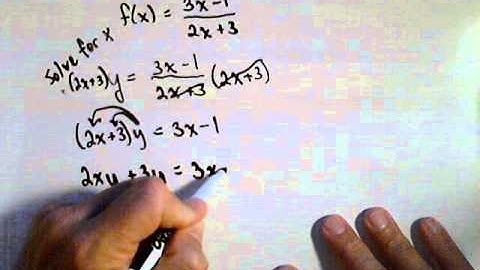 f(x) = 3x-1 / 2x+3
solve for x
(2x+3) y = 3x-1 / 2x+3 (2x+3)
(2x+3) y = 3x-1
2xy + 3y = 3x